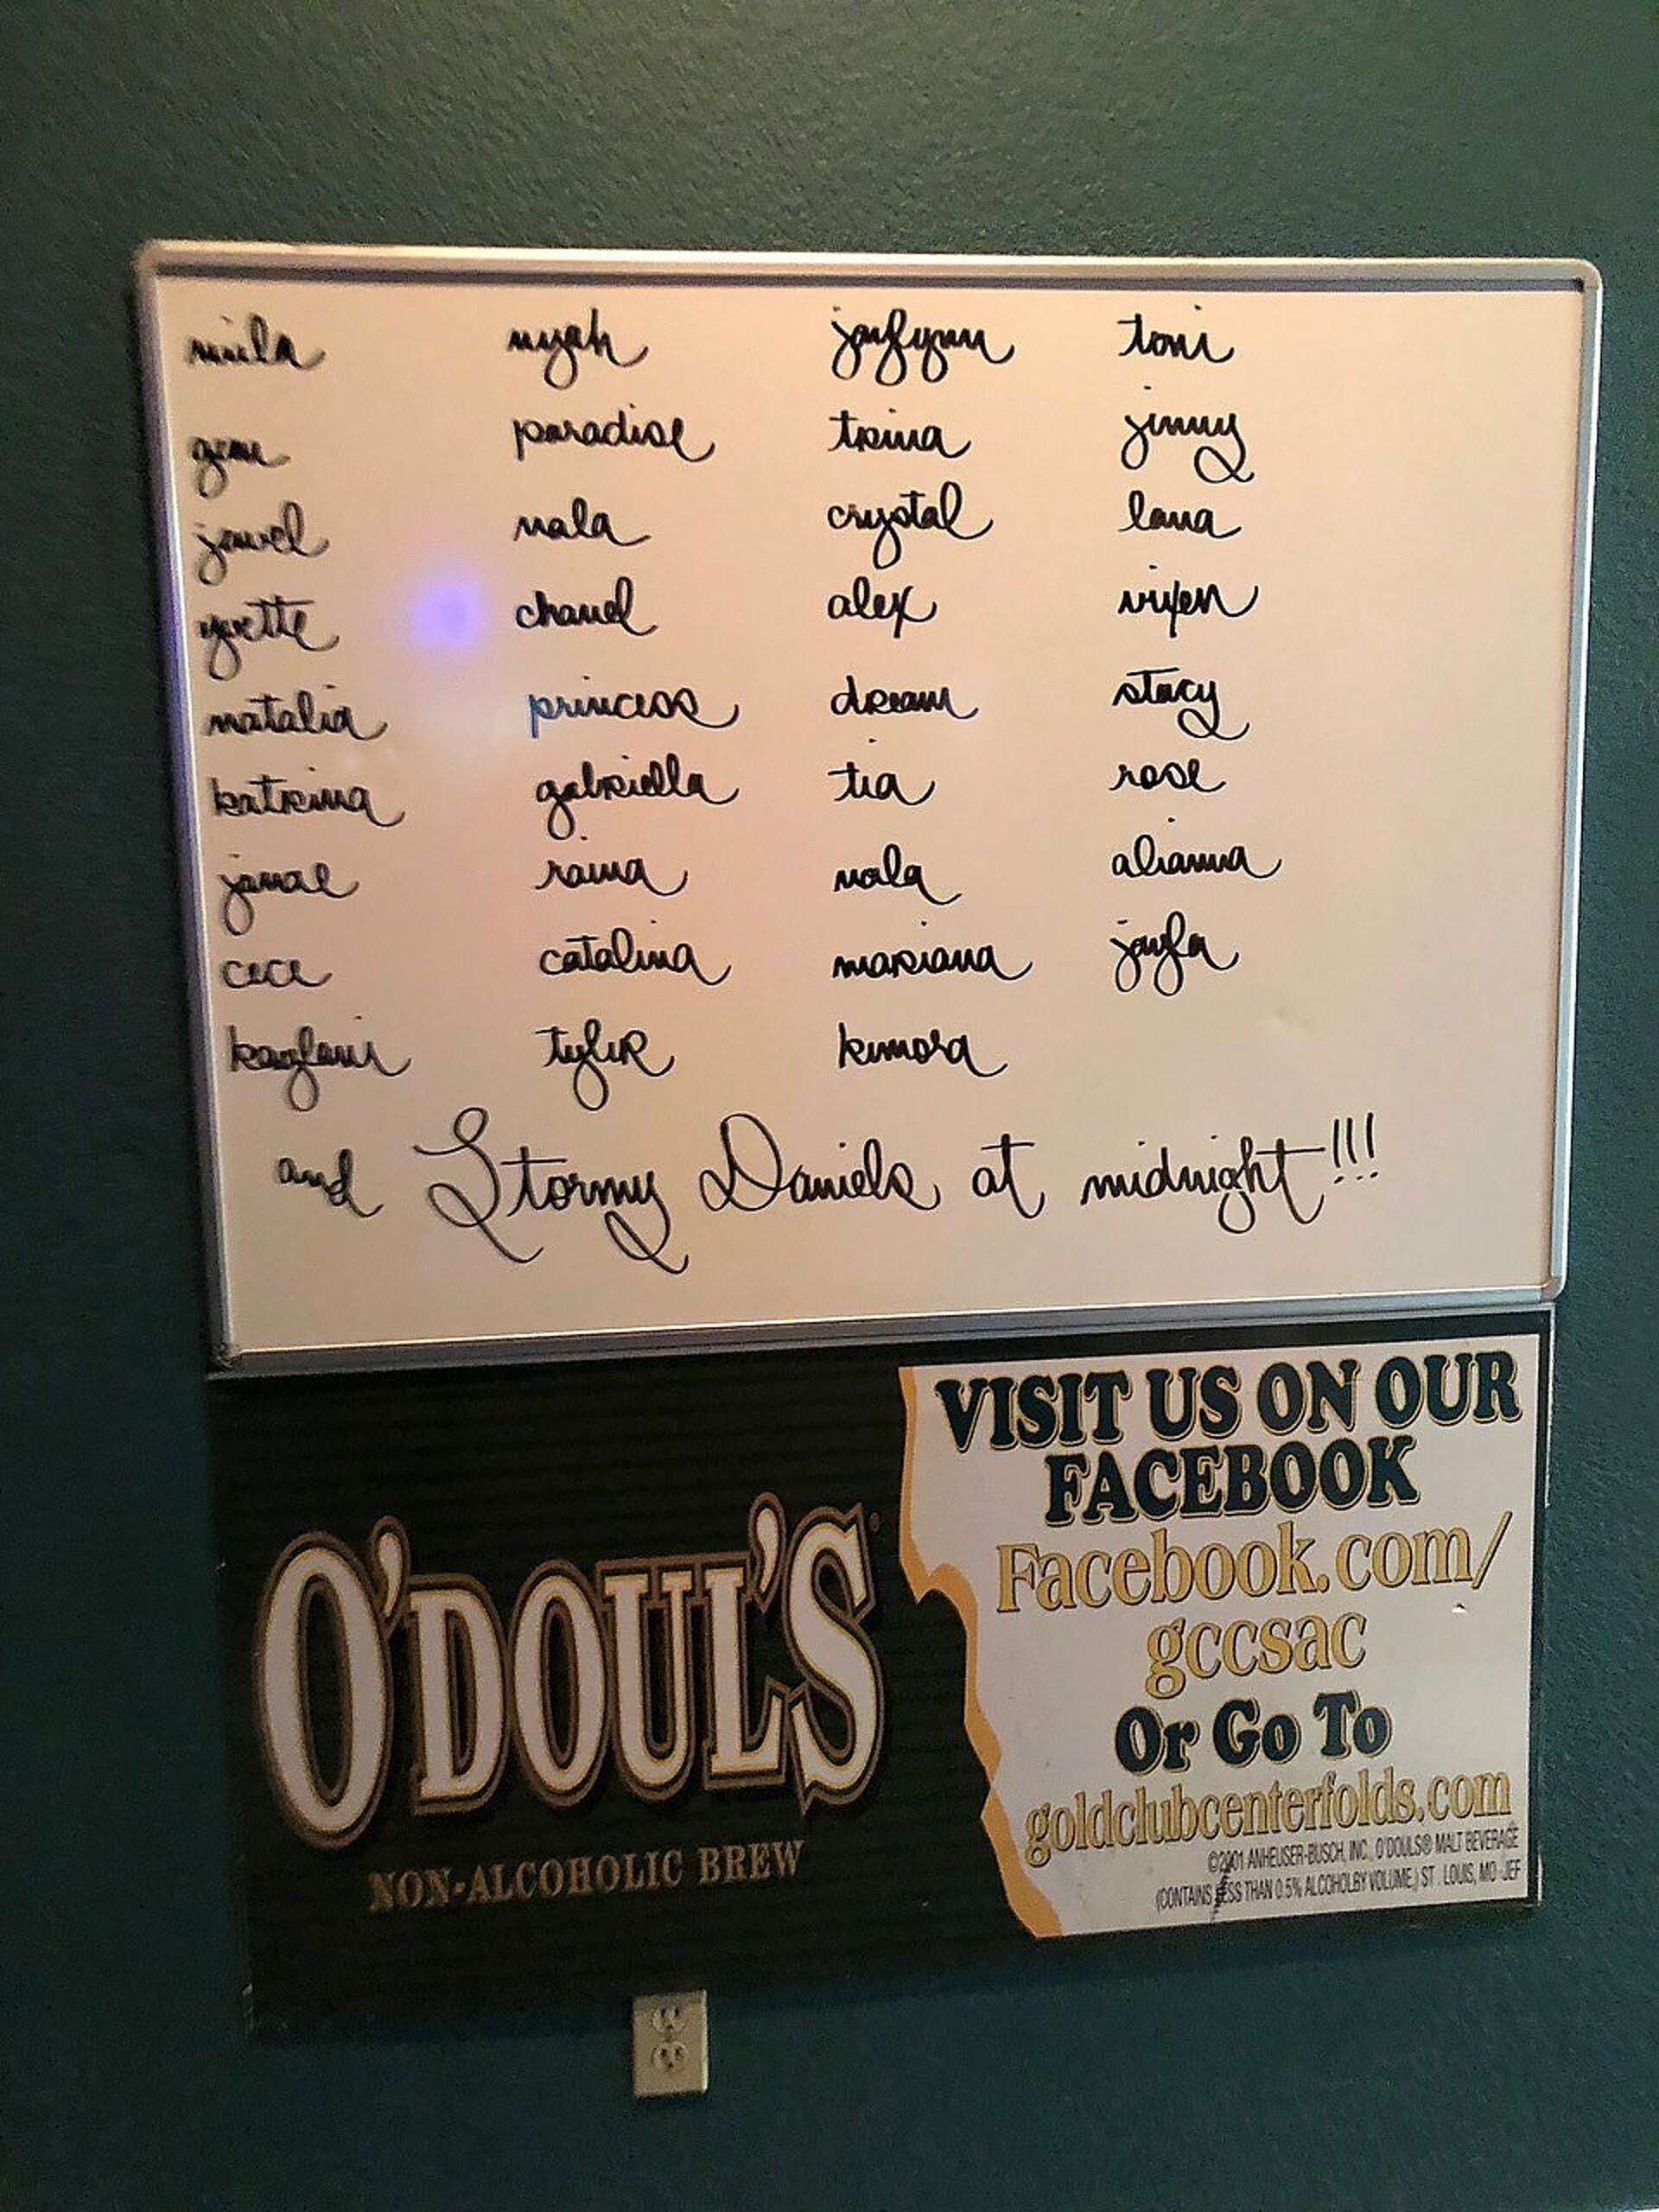 mila myah jaylynn toni
gem paradise trina jinny
jewel nala crystal lana
yvette chanel alex vixen
natalia princess dream stacy
katrina gabriella tia rose
janae raina nola alianna
cece catalina mariana jayla
kaylani tyler kimora
and Stormy Daniels at midnight!!!
O'DOUL'S
NON-ALCOHOLIC BREW
VISIT US ON OUR
FACEBOOK
Facebook.com/
gccsac
Or Go To
goldclubcenterfolds.com
©2001 ANHEUSER-BUSCH, INC., O'DOULS® MALT BEVERAGE
(CONTAINS LESS THAN 0.5% ALCOHOL BY VOLUME,) ST. LOUIS, MO -JEF